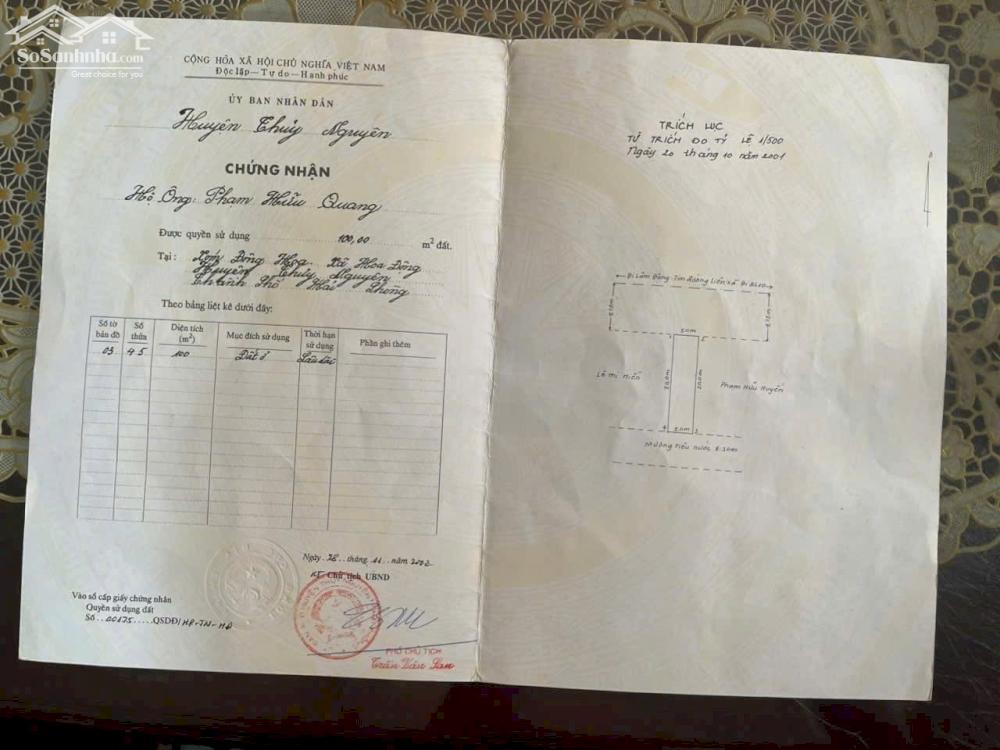 SoSanhnha.com
Great choice for you
CỘNG HÒA XÃ HỘI CHỦ NGHĨA VIỆT NAM
Độc lập - Tự do - Hạnh phúc
ỦY BAN NHÂN DÂN
Huyện Thủy Nguyên
CHỨNG NHẬN
Hộ Ông: Phạm Hữu Quang
Được quyền sử dụng 100,00 m² đất.
Tại: Xóm Đông Hoa. Xã Hoa Động
Huyện Thủy Nguyên
Thành Phố Hải Phòng
Theo bảng liệt kê dưới đây:
Số tờ bản đồ Số thửa Diện tích (m²) Mục đích sử dụng Thời hạn sử dụng Phần ghi thêm
03 45 100 Đất ở Lâu dài
Ngày 28 tháng 11 năm 2002
KT Chủ tịch UBND
Vào sổ cấp giấy chứng nhận
Quyền sử dụng đất
Số 00175 QSDĐ/HP-TN-HĐ
PHÓ CHỦ TỊCH
Trần Văn San
TRÍCH LỤC
TỪ TRÍCH ĐO TỶ LỆ 1/500
Ngày 20 tháng 10 năm 2001
Đi Lâm Động Tim đường liên xã
5.0m
Lê Thị Hiền
20.0m
20.0m
Phạm Hữu Huyến
5.0m
Mương tiêu nước